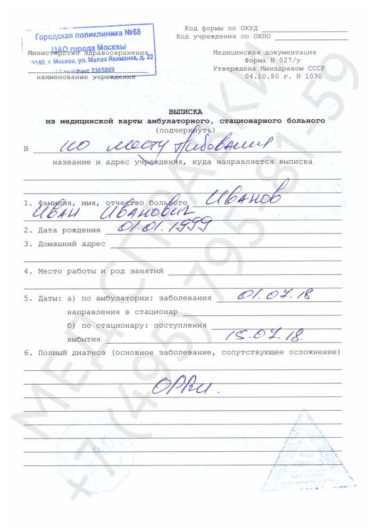 Городская поликлиника №68
ЦАО города Москвы
Министерство здравоохранения
г. Москва, ул. Малая Якиманка, д. 22
наименование учреждения
Код формы по ОКУД
Код учреждения по ОКПО
Медицинская документация
Форма N 027/у
Утверждена Минздравом СССР
04.10.80 г. N 1030
ВЫПИСКА
из медицинской карты амбулаторного, стационарного больного
(подчеркнуть)
В по месту требования
название и адрес учреждения, куда направляется выписка
1. Фамилия, имя, отчество больного Иванов
Иван Иванович
2. Дата рождения 01.01.1999
3. Домашний адрес
4. Место работы и род занятий
5. Даты: а) по амбулатории: заболевания 01.07.18
направления в стационар
б) по стационару: поступления
выбытия 15.07.18
6. Полный диагноз (основное заболевание, сопутствующее осложнение)
ОРВИ.
МЕД СПРАВКИ
+7 (495) 795-81-59